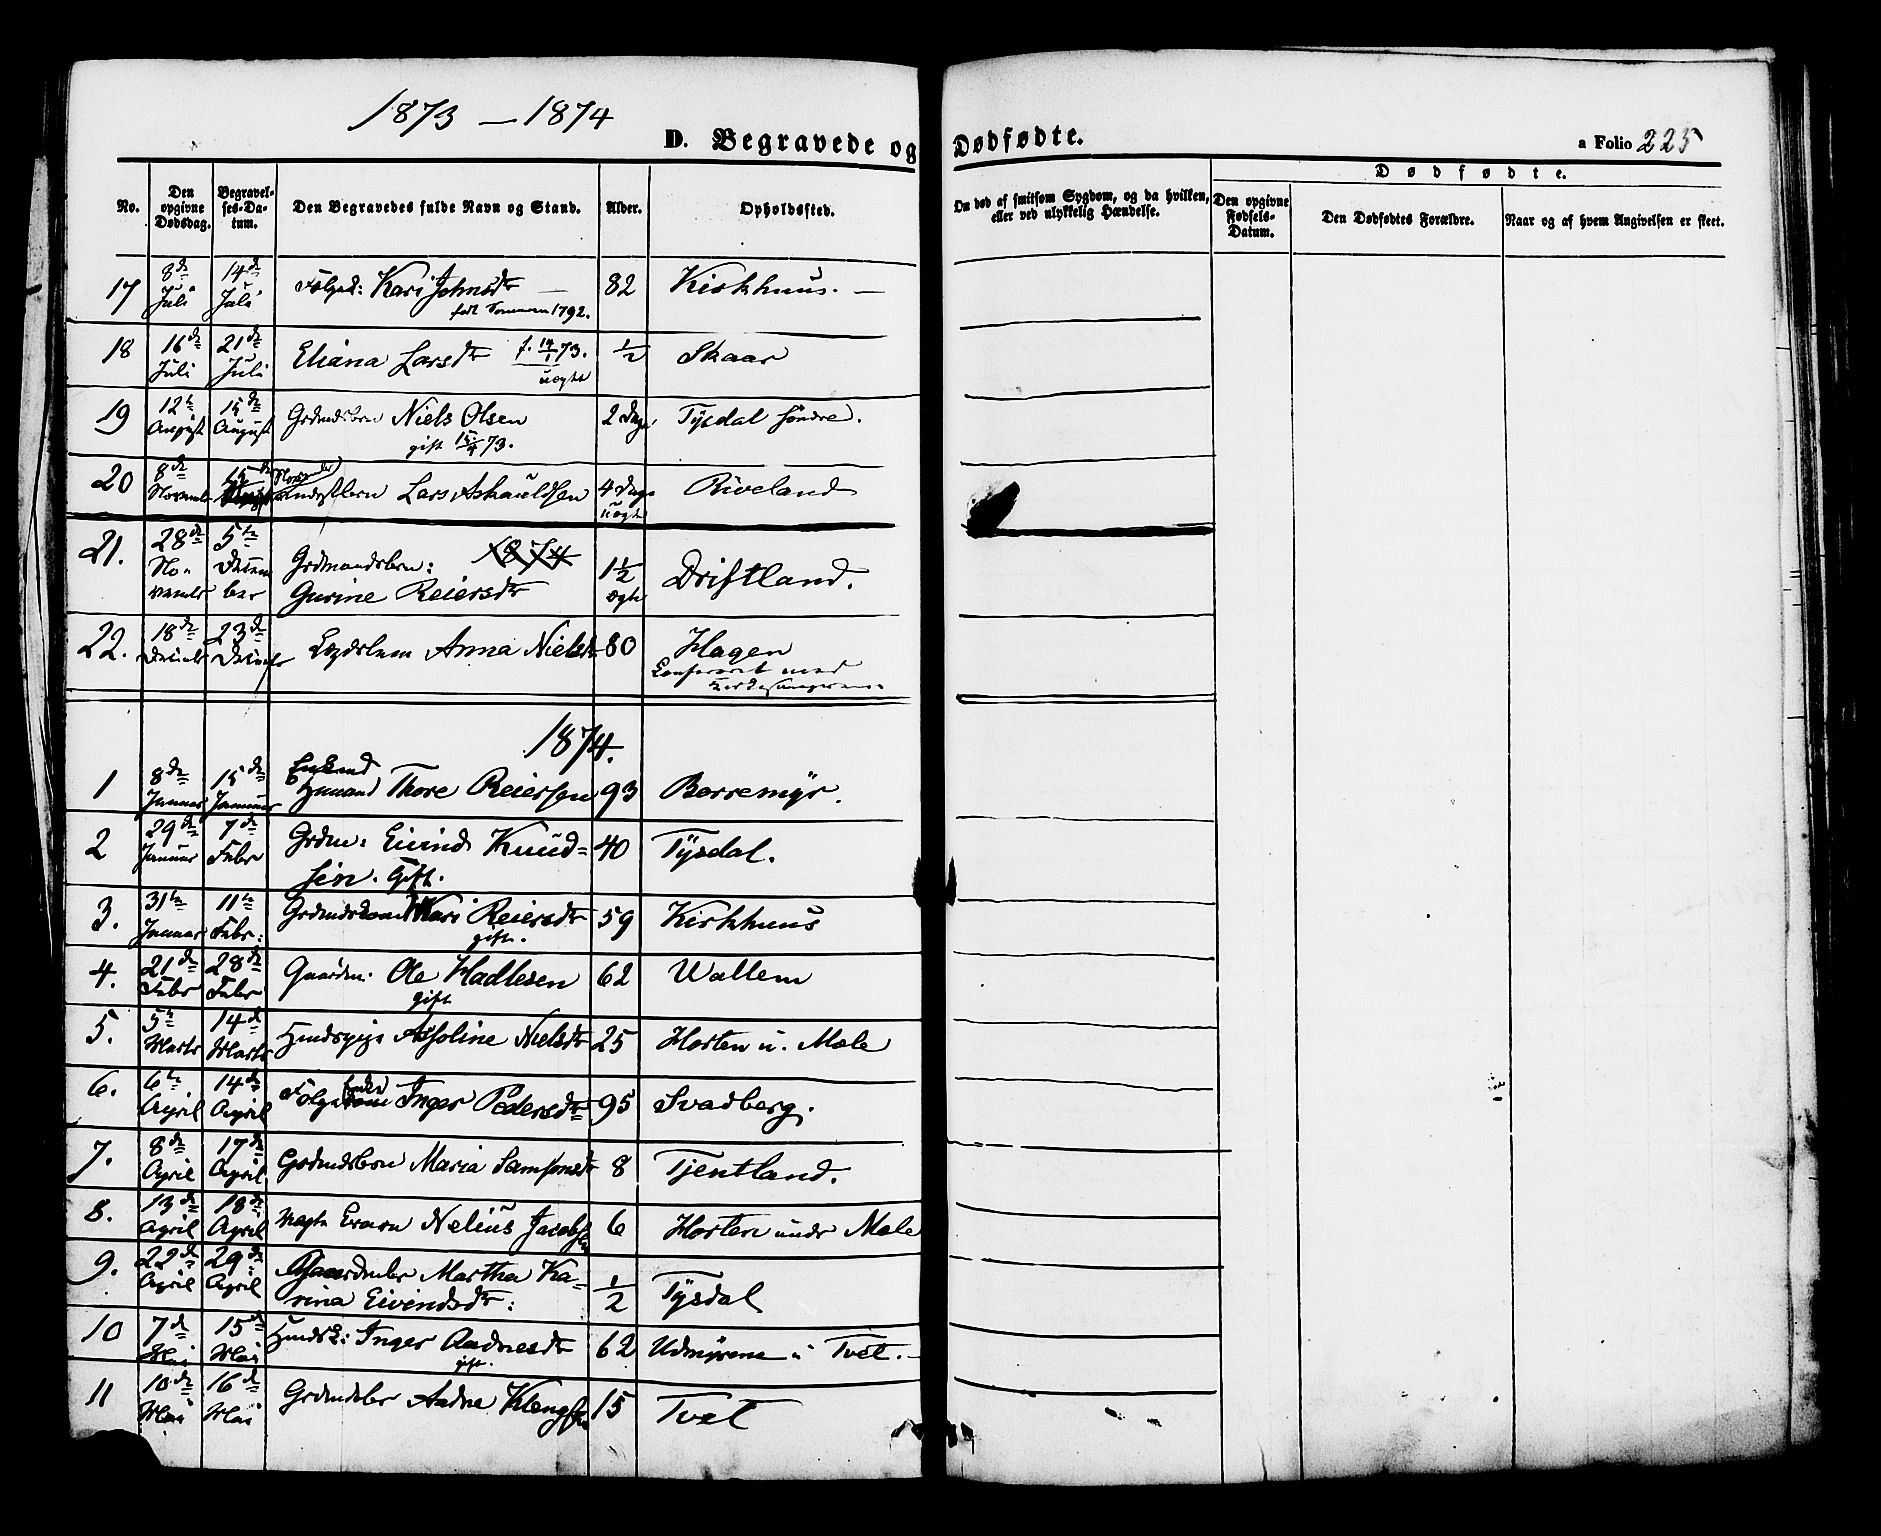 1873 – 1874
D. Begravede og Dødfødte.
a Folio 225
No. Den opgivne Dødsdag. Begravelses-Datum. Den Begravedes fulde Navn og Stand. Alder. Opholdssted. Om død af smitsom Sygdom, og da hvilken, eller ved ulykkelig Hændelse. Dødfødte. Den opgivne Fødsels-Datum. Den Dødfødtes Forældre. Naar og af hvem Angivelsen er skeet.
17 8de Juli 14de Juli Kari Johnsdtr 82 Kirkhuus. –
1792.
18 16de Juli 21de Juli Eliana Larsdtr f. 14/1 73. 1/2 Skaar
uægte
19 12te August 15de August Grdmdsbrn Niels Olsen 2 Dage Tysdal søndre.
73.
20 8de Novembr 15de November Lars Askauldsen 4 Dage Riveland
uægte
21. 28de November 5te Decem
ber Grdmandsbrn: 1874 1 1/2 Driftland.
Gurine Reiersdtr ægte
22. 18de Decembr 23de Decembr Anna Nielsdtr 80 Hagen
1874.
1 8de Januar 15de Januar Thore Reiersen 93 Borremyr.
2 29de Januar 7de Febr Grdm: Eivind Knud- 40 Tysdal.
sen. Gift.
3. 31te Januar 11te Febr: Kari Reiersdtr 59 Kirkhuus
gift.
4. 21de Febr 28de Febr Gaardm. Ole Hadlesen 62 Wallem
gift
5. 5te Marts 14de Marts Asseline Nielsdtr 25 Horten u. Mæle
6. 6te April 14de April Følge Enke Inger Pedersdtr 95 Svadberg.
7. 8de April 17de April Grdmdsbrn Maria Samsonsdtr 8 Tjentland.
8. 13de April 18de April Nelius Jacobsen 6 Horten undr Mæle
9. 22de April 29de April Gaardmbr Martha Ka-
rina Eivindsdtr: 1/2 Tysdal
10 7de Mai 15de Mai Inger Aadnesdtr 62 Udmyrene u Tvet. –
gift.
11 10de Mai 16de Mai Grdmdsbr Aadne Klengsen 15 Tvet